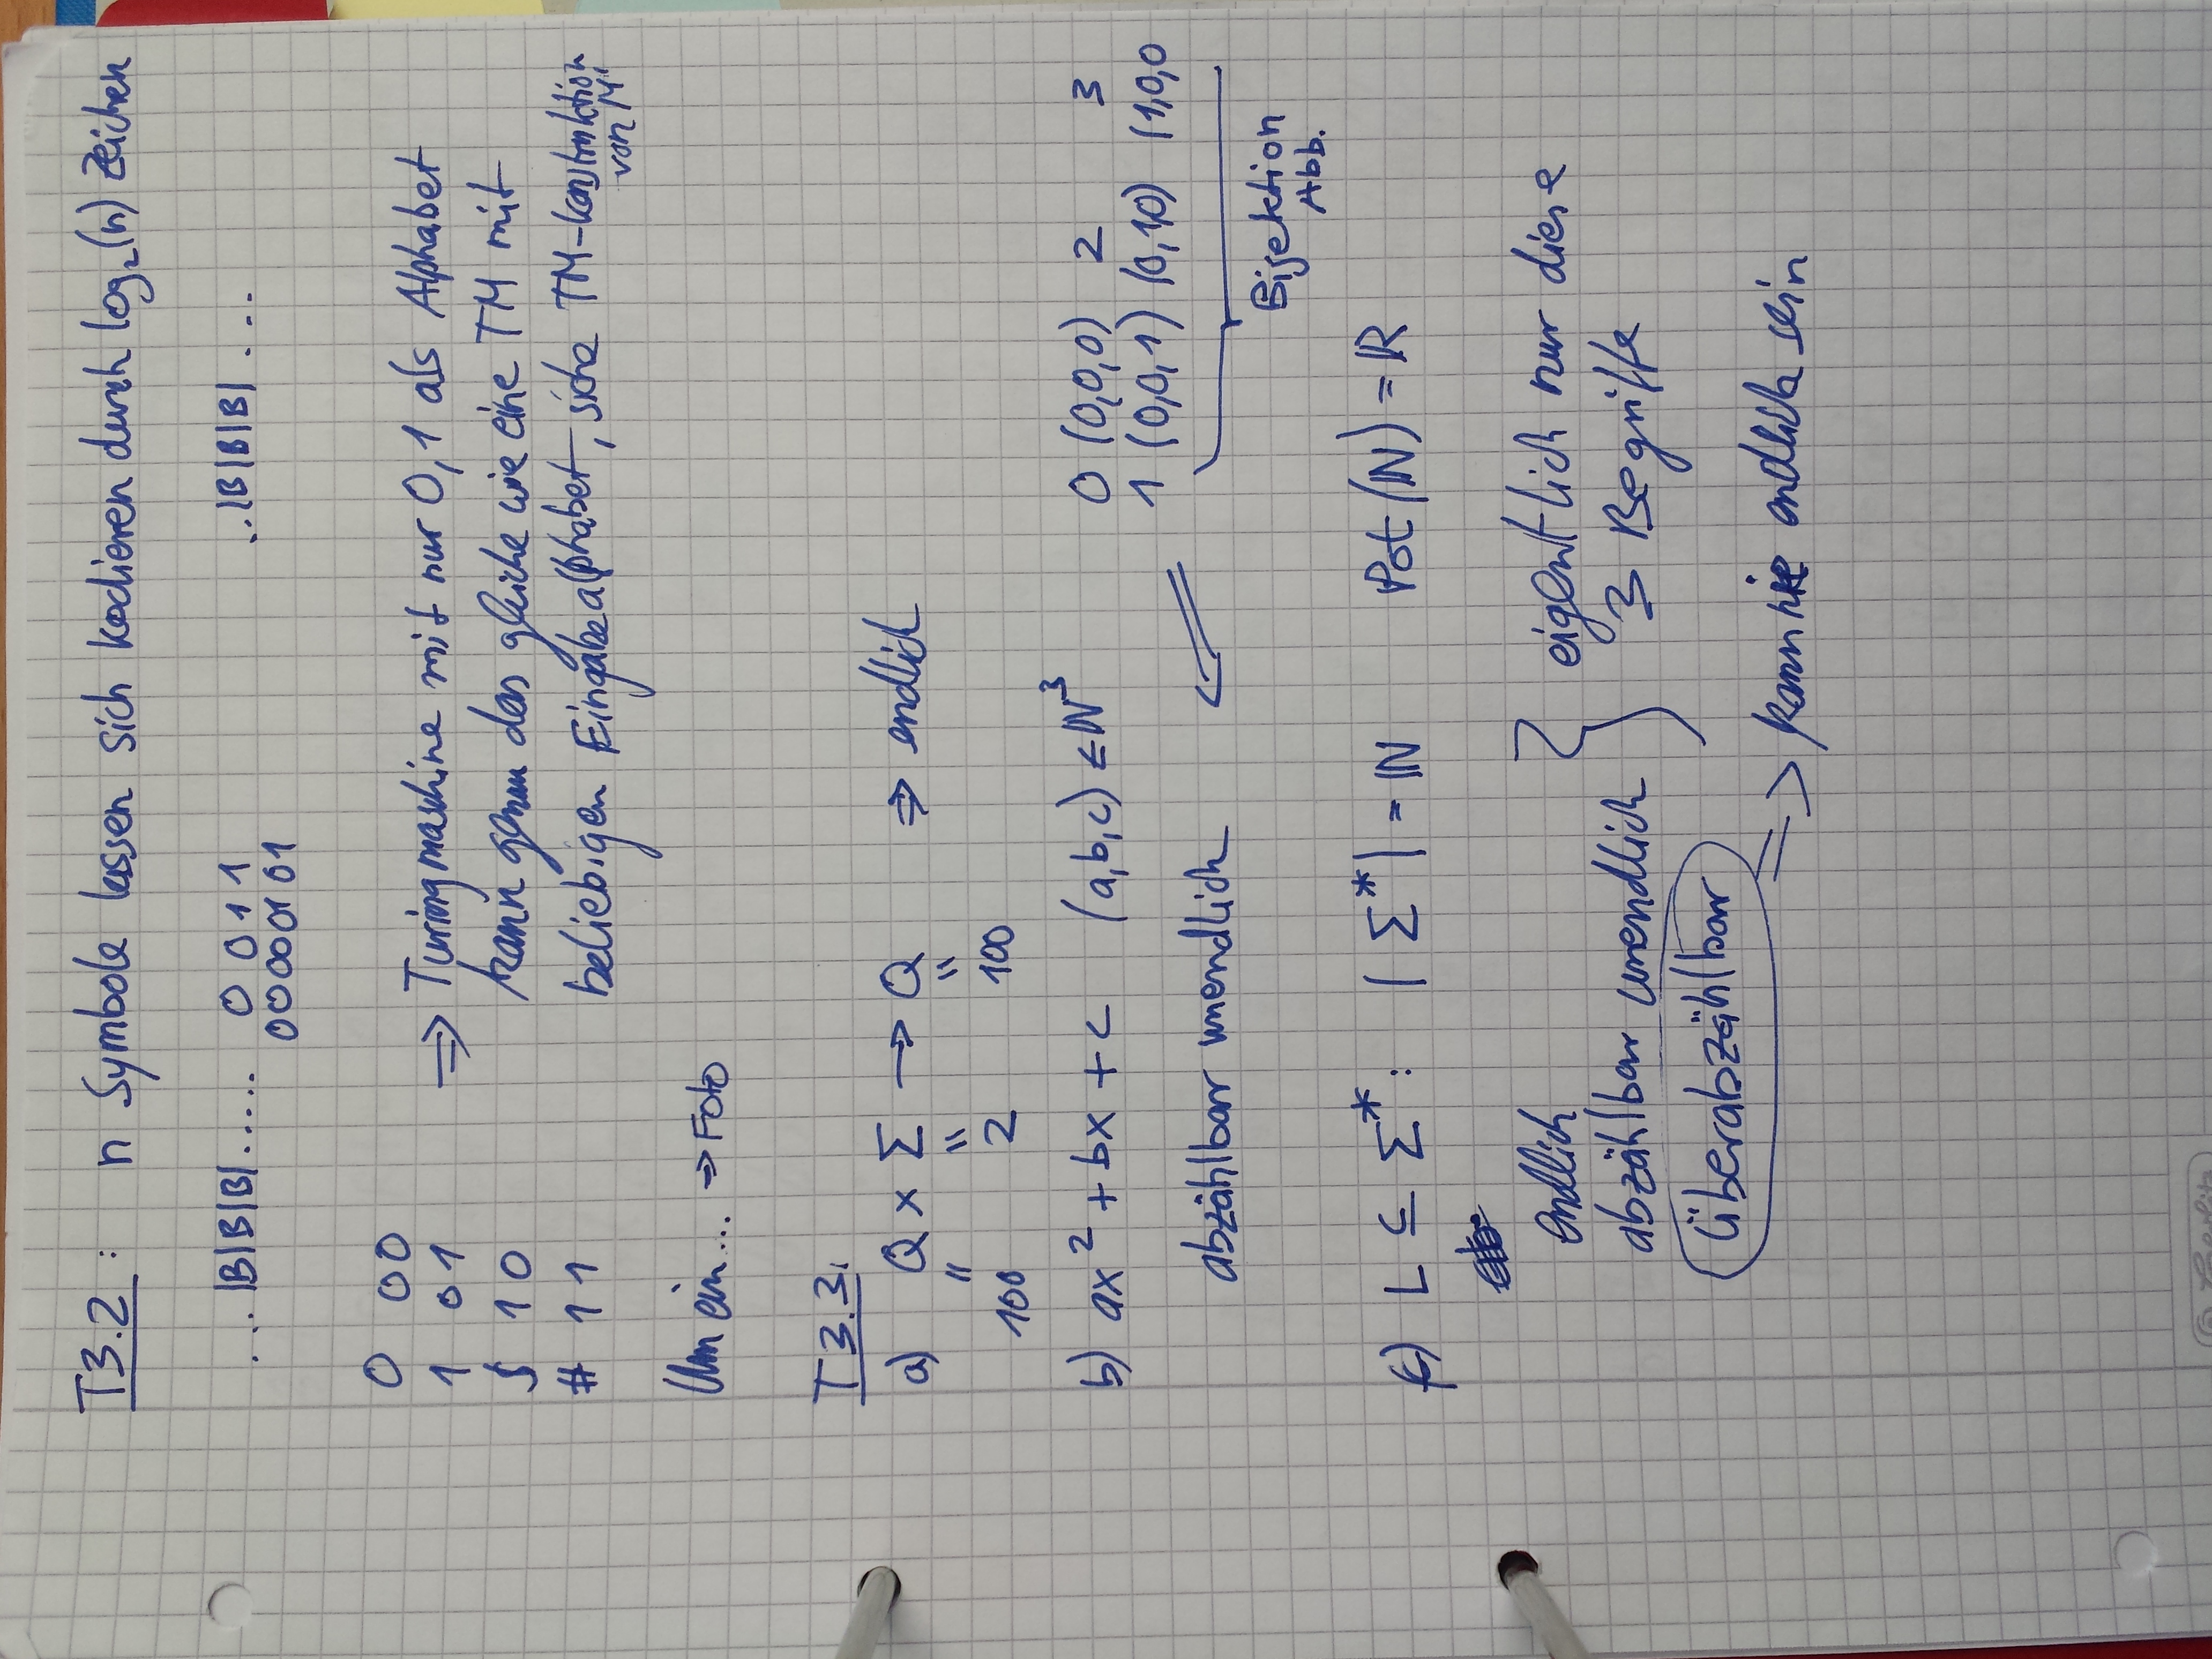 T3.2 : n Symbole lassen sich kodieren durch log₂(n) Zeichen
... |B|B|B| ..... 0 0 1 1 ..|B|B|B| ...
00 00 01 01
0 00
1 01
$ 10
# 11
⇒ Turingmaschine mit nur 0,1 als Alphabet
kann genau das gleiche wie eine TM mit
beliebigen Eingabealphabet, siehe TM-Konstruktion
von M'
Um ein... ⇒ Foto
T3.3.
a) Q × Σ → Q ⇒ endlich
" " "
100 2 100
b) ax² + bx + c (a,b,c) ∈ ℕ³
0 (0,0,0) 2 3
1 (0,0,1) (0,1,0) (1,0,0
abzählbar unendlich ⇐
Bijektion
Abb.
c) L ⊆ Σ* : |Σ*| = ℕ Pot(ℕ) = ℝ
endlich
abzählbar unendlich
Überabzählbar
} eigentlich nur diese
3 Begriffe
⇒ kann nie endlich sein